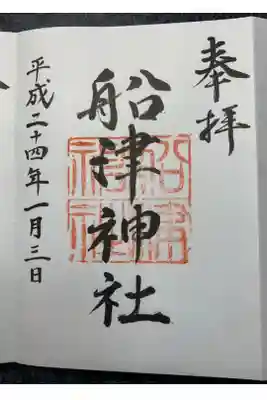 奉拝
船津神社
平成二十四年一月三日